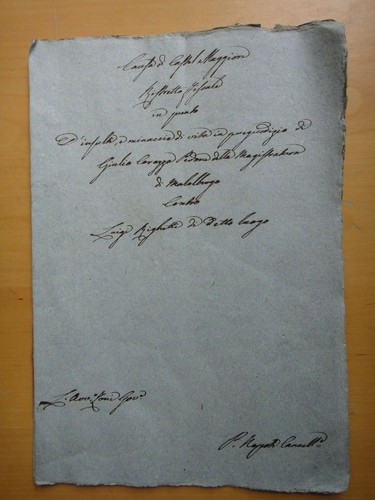 Causa di Castel Maggiore
Ristretto Fiscale
in punto
D'insulti, e minaccie di vita in pregiudizio di
Giulio Carazza Pedone della Magistratura
di Malalbergo
Contro
Luigi Righetti di Detto luogo
L. Avv.
P. Napoli Cancell.e